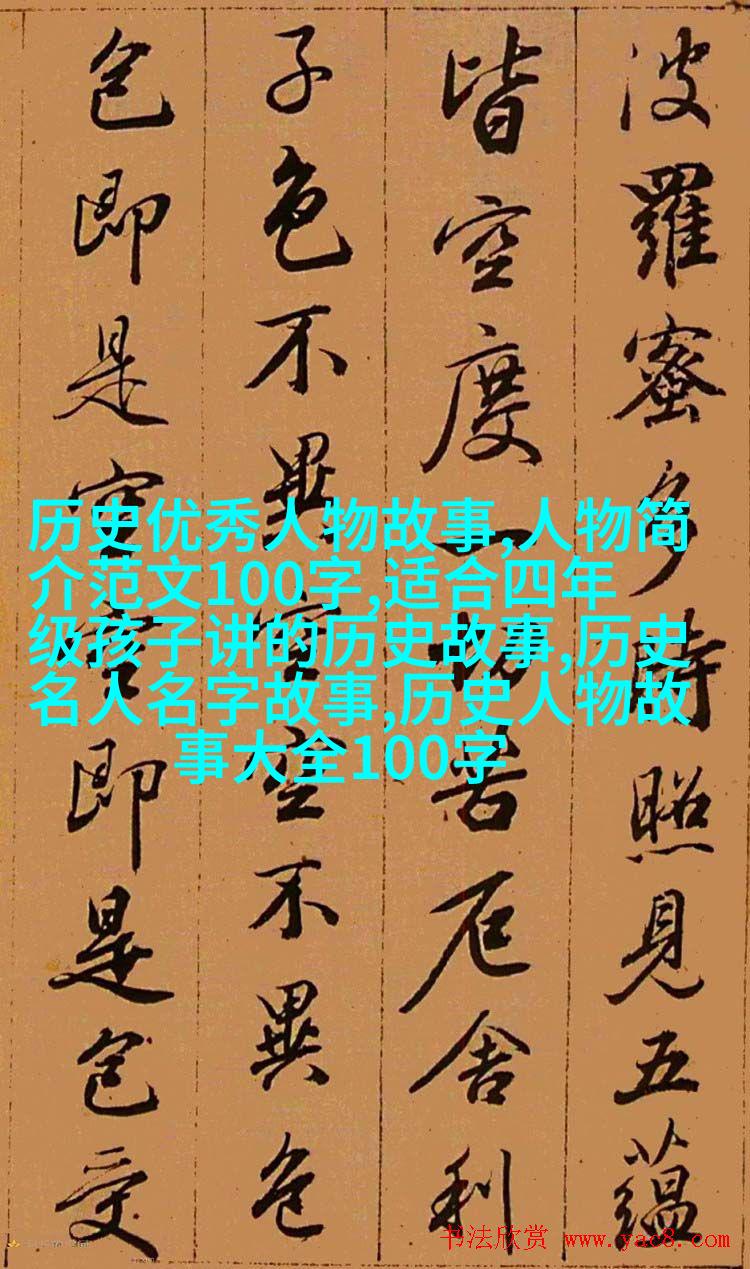 波羅蜜多時照見五蘊
皆空度一切苦厄舍利
子色不異空空不異色
色即是空空即是色受
历史优秀人物故事,人物简
介范文100字,适合四年
级孩子讲的历史故事,历史
名人名字故事,历史人物故
事大全100字
书法欣赏 www.yac8.com